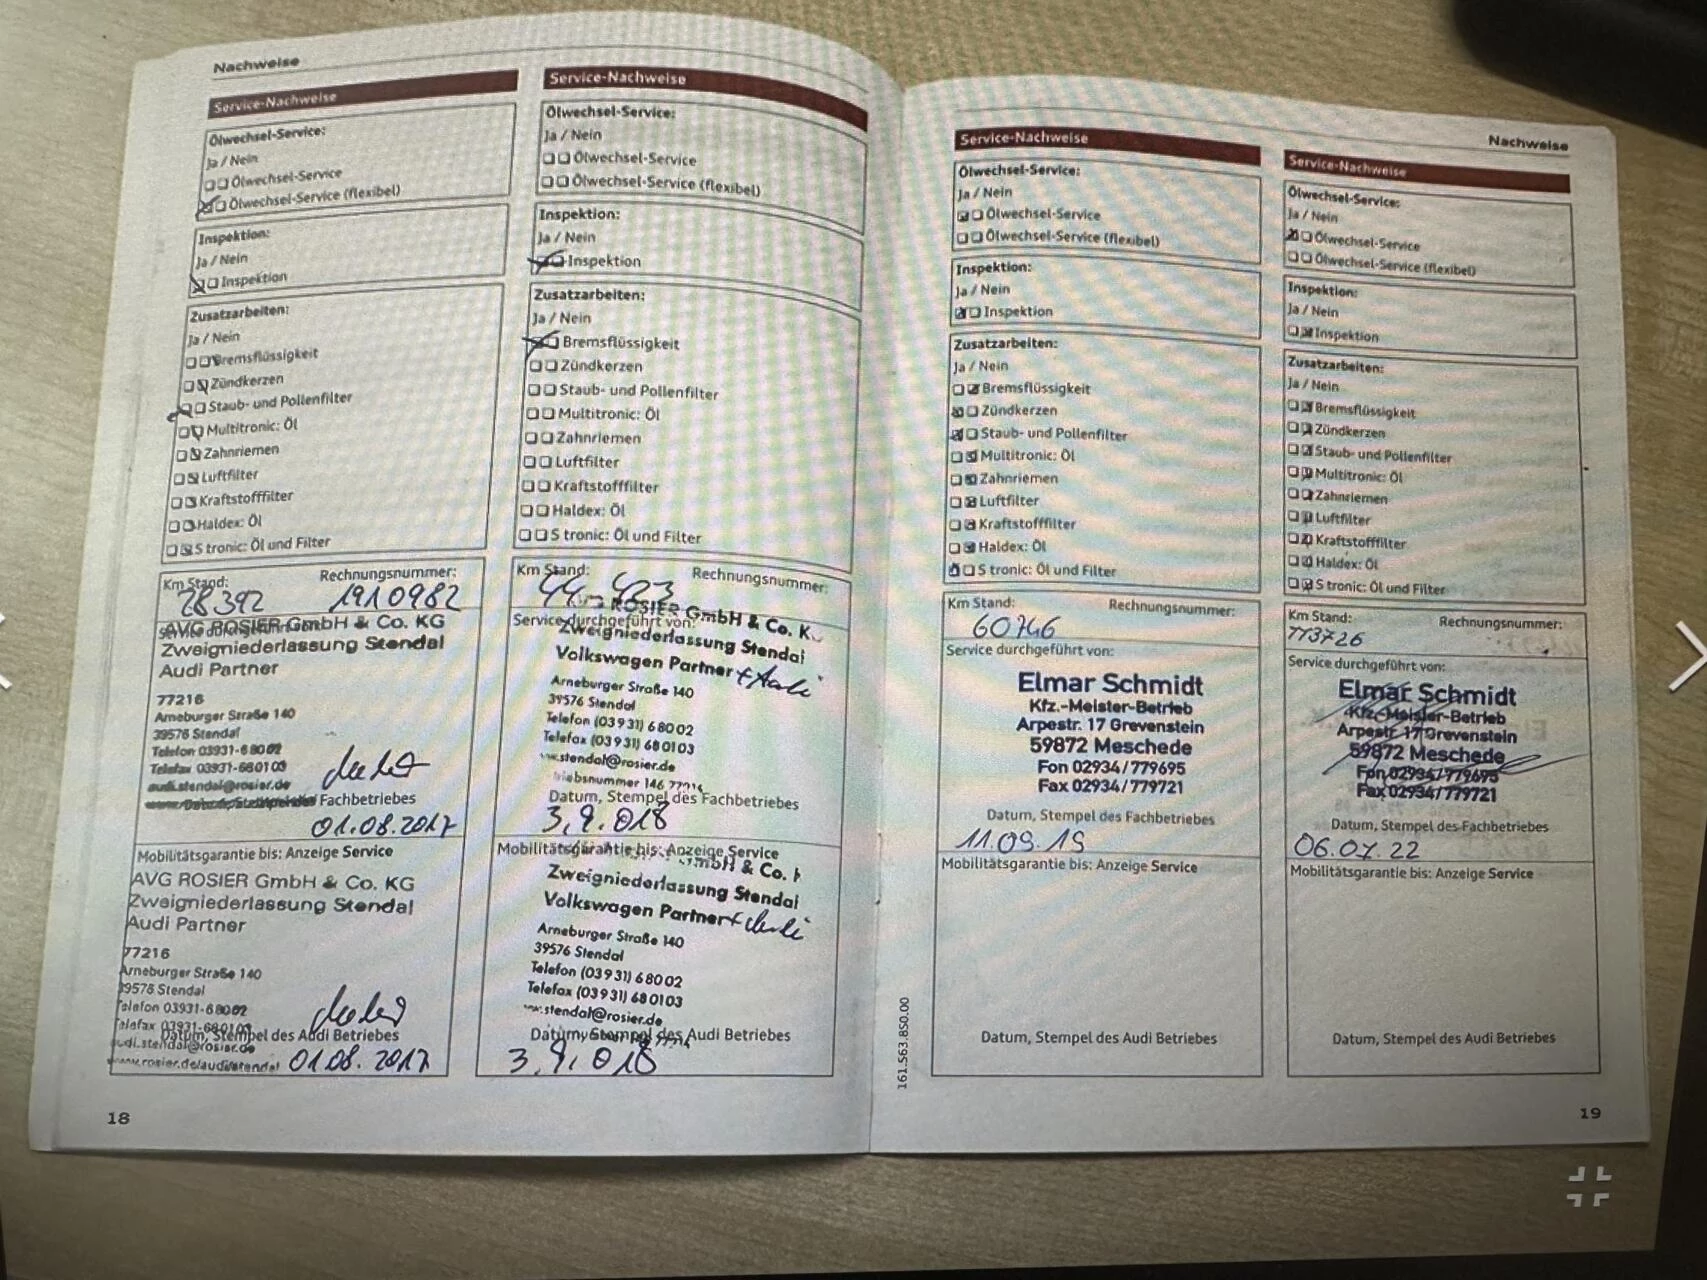 Nachweise
Service-Nachweise
Ölwechsel-Service:
Ja / Nein
Ölwechsel-Service
Ölwechsel-Service (flexibel)
Inspektion:
Ja / Nein
Inspektion
Zusatzarbeiten:
Ja / Nein
Bremsflüssigkeit
Zündkerzen
Staub- und Pollenfilter
Multitronic: Öl
Zahnriemen
Luftfilter
Kraftstofffilter
Haldex: Öl
S tronic: Öl und Filter
Km Stand:
Rechnungsnummer:
28392
1910982
AVG ROSIER GmbH & Co. KG
Zweigniederlassung Stendal
Audi Partner
77216
Arneburger Straße 140
39576 Stendal
Telefon 03931-68002
Telefax 03931-680103
audi.stendal@rosier.de
Fachbetriebes
01.08.2017
Mobilitätsgarantie bis: Anzeige Service
AVG ROSIER GmbH & Co. KG
Zweigniederlassung Stendal
Audi Partner
77216
Arneburger Straße 140
39576 Stendal
Telefon 03931-68002
Telefax 03931-680103
Datum, Stempel des Audi Betriebes
audi.stendal@rosier.de
www.rosier.de/audi/stendal
01.08.2017
18
Service-Nachweise
Ölwechsel-Service:
Ja / Nein
Ölwechsel-Service
Ölwechsel-Service (flexibel)
Inspektion:
Ja / Nein
Inspektion
Zusatzarbeiten:
Ja / Nein
Bremsflüssigkeit
Zündkerzen
Staub- und Pollenfilter
Multitronic: Öl
Zahnriemen
Luftfilter
Kraftstofffilter
Haldex: Öl
S tronic: Öl und Filter
Km Stand:
Rechnungsnummer:
44.423
ROSIER GmbH & Co. K
Service durchgeführt von:
Zweigniederlassung Stendal
Volkswagen Partner
Arneburger Straße 140
39576 Stendal
Telefon (03931) 68002
Telefax (03931) 680103
stendal@rosier.de
Datum, Stempel des Fachbetriebes
3.9.018
Mobilitätsgarantie bis: Anzeige Service
Zweigniederlassung Stendal
Volkswagen Partner
Arneburger Straße 140
39576 Stendal
Telefon (03931) 68002
Telefax (03931) 680103
stendal@rosier.de
Datum, Stempel des Audi Betriebes
3.9.018
161.563.850.00
Nachweise
Service-Nachweise
Ölwechsel-Service:
Ja / Nein
Ölwechsel-Service
Ölwechsel-Service (flexibel)
Inspektion:
Ja / Nein
Inspektion
Zusatzarbeiten:
Ja / Nein
Bremsflüssigkeit
Zündkerzen
Staub- und Pollenfilter
Multitronic: Öl
Zahnriemen
Luftfilter
Kraftstofffilter
Haldex: Öl
S tronic: Öl und Filter
Km Stand:
Rechnungsnummer:
60746
Service durchgeführt von:
Elmar Schmidt
Kfz.-Meister-Betrieb
Arpestr. 17 Grevenstein
59872 Meschede
Fon 02934/779695
Fax 02934/779721
Datum, Stempel des Fachbetriebes
11.09.19
Mobilitätsgarantie bis: Anzeige Service
Datum, Stempel des Audi Betriebes
Service-Nachweise
Ölwechsel-Service:
Ja / Nein
Ölwechsel-Service
Ölwechsel-Service (flexibel)
Inspektion:
Ja / Nein
Inspektion
Zusatzarbeiten:
Ja / Nein
Bremsflüssigkeit
Zündkerzen
Staub- und Pollenfilter
Multitronic: Öl
Zahnriemen
Luftfilter
Kraftstofffilter
Haldex: Öl
S tronic: Öl und Filter
Km Stand:
Rechnungsnummer:
113726
Service durchgeführt von:
Elmar Schmidt
Kfz.-Meister-Betrieb
Arpestr. 17 Grevenstein
59872 Meschede
Fon 02934/779695
Fax 02934/779721
Datum, Stempel des Fachbetriebes
06.07.22
Mobilitätsgarantie bis: Anzeige Service
Datum, Stempel des Audi Betriebes
19